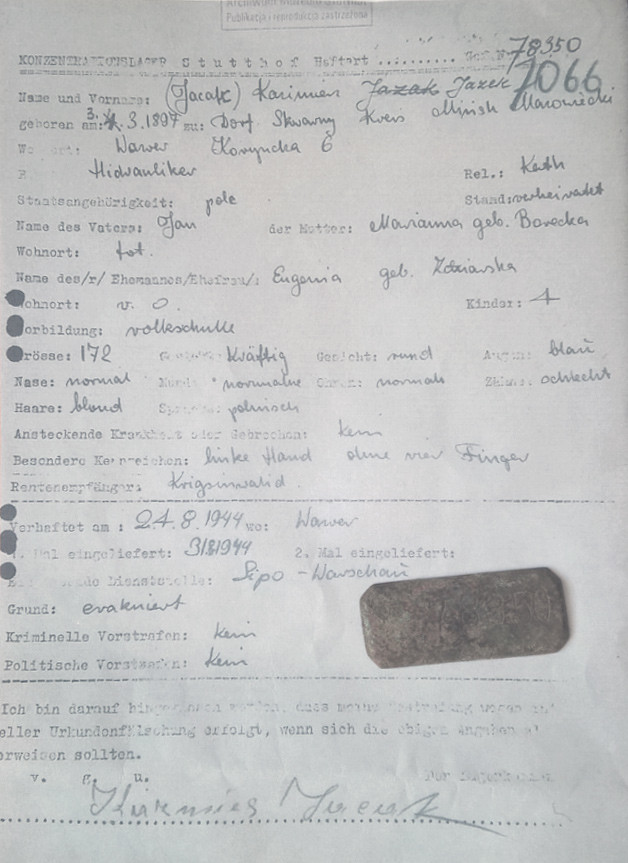 Publikacja i reprodukcja zastrzeżona
KONZENTRATIONSLAGER Stutthof Haftart .......... Gef.Nr 78350
7066
Name und Vorname: (Jacak) Kazimierz Jazak Jazek
geboren am: 3. 3.1897 zu: Dorf. Skwarny Kreis Minsk Mazowiecki
Wohnort: Wawer Koryncka 6
Hidrauliker Rel.: Kath
Staatsangehörigkeit: pole Stand: verheiratet
Name des Vaters: Jan der Mutter: Marianna geb. Borecka
Wohnort: tot.
Name des/r/ Ehemannes/Ehefrau/: Eugenia geb. Zdziarska
Wohnort: v. O. Kinder: 4
Vorbildung: volkschulle
Grösse: 172 Gestalt: Kräftig Gesicht: rund Augen: blau
Nase: normal Mund: normalne Ohren: normal Zähne: schlecht
Haare: blond Sprache: polnisch
Ansteckende Krankheit oder Gebrechen: kein
Besondere Kennzeichen: linke Hand ohne vier Finger
Rentenempfänger: Krigsinwalid.
Verhaftet am: 24.8.1944 wo: Wawer
1. Mal eingeliefert: 31.8.1944 2. Mal eingeliefert:
Dienststelle: Sipo - Warschau
Grund: evakuiert
Kriminelle Vorstrafen: Kein
Politische Vorstrafen: Kein
Ich bin darauf hingewiesen worden, dass meine Bestrafung wegen
eller Urkundenfälschung erfolgt, wenn sich die obigen Angaben
erweisen sollten.
v. g. u.